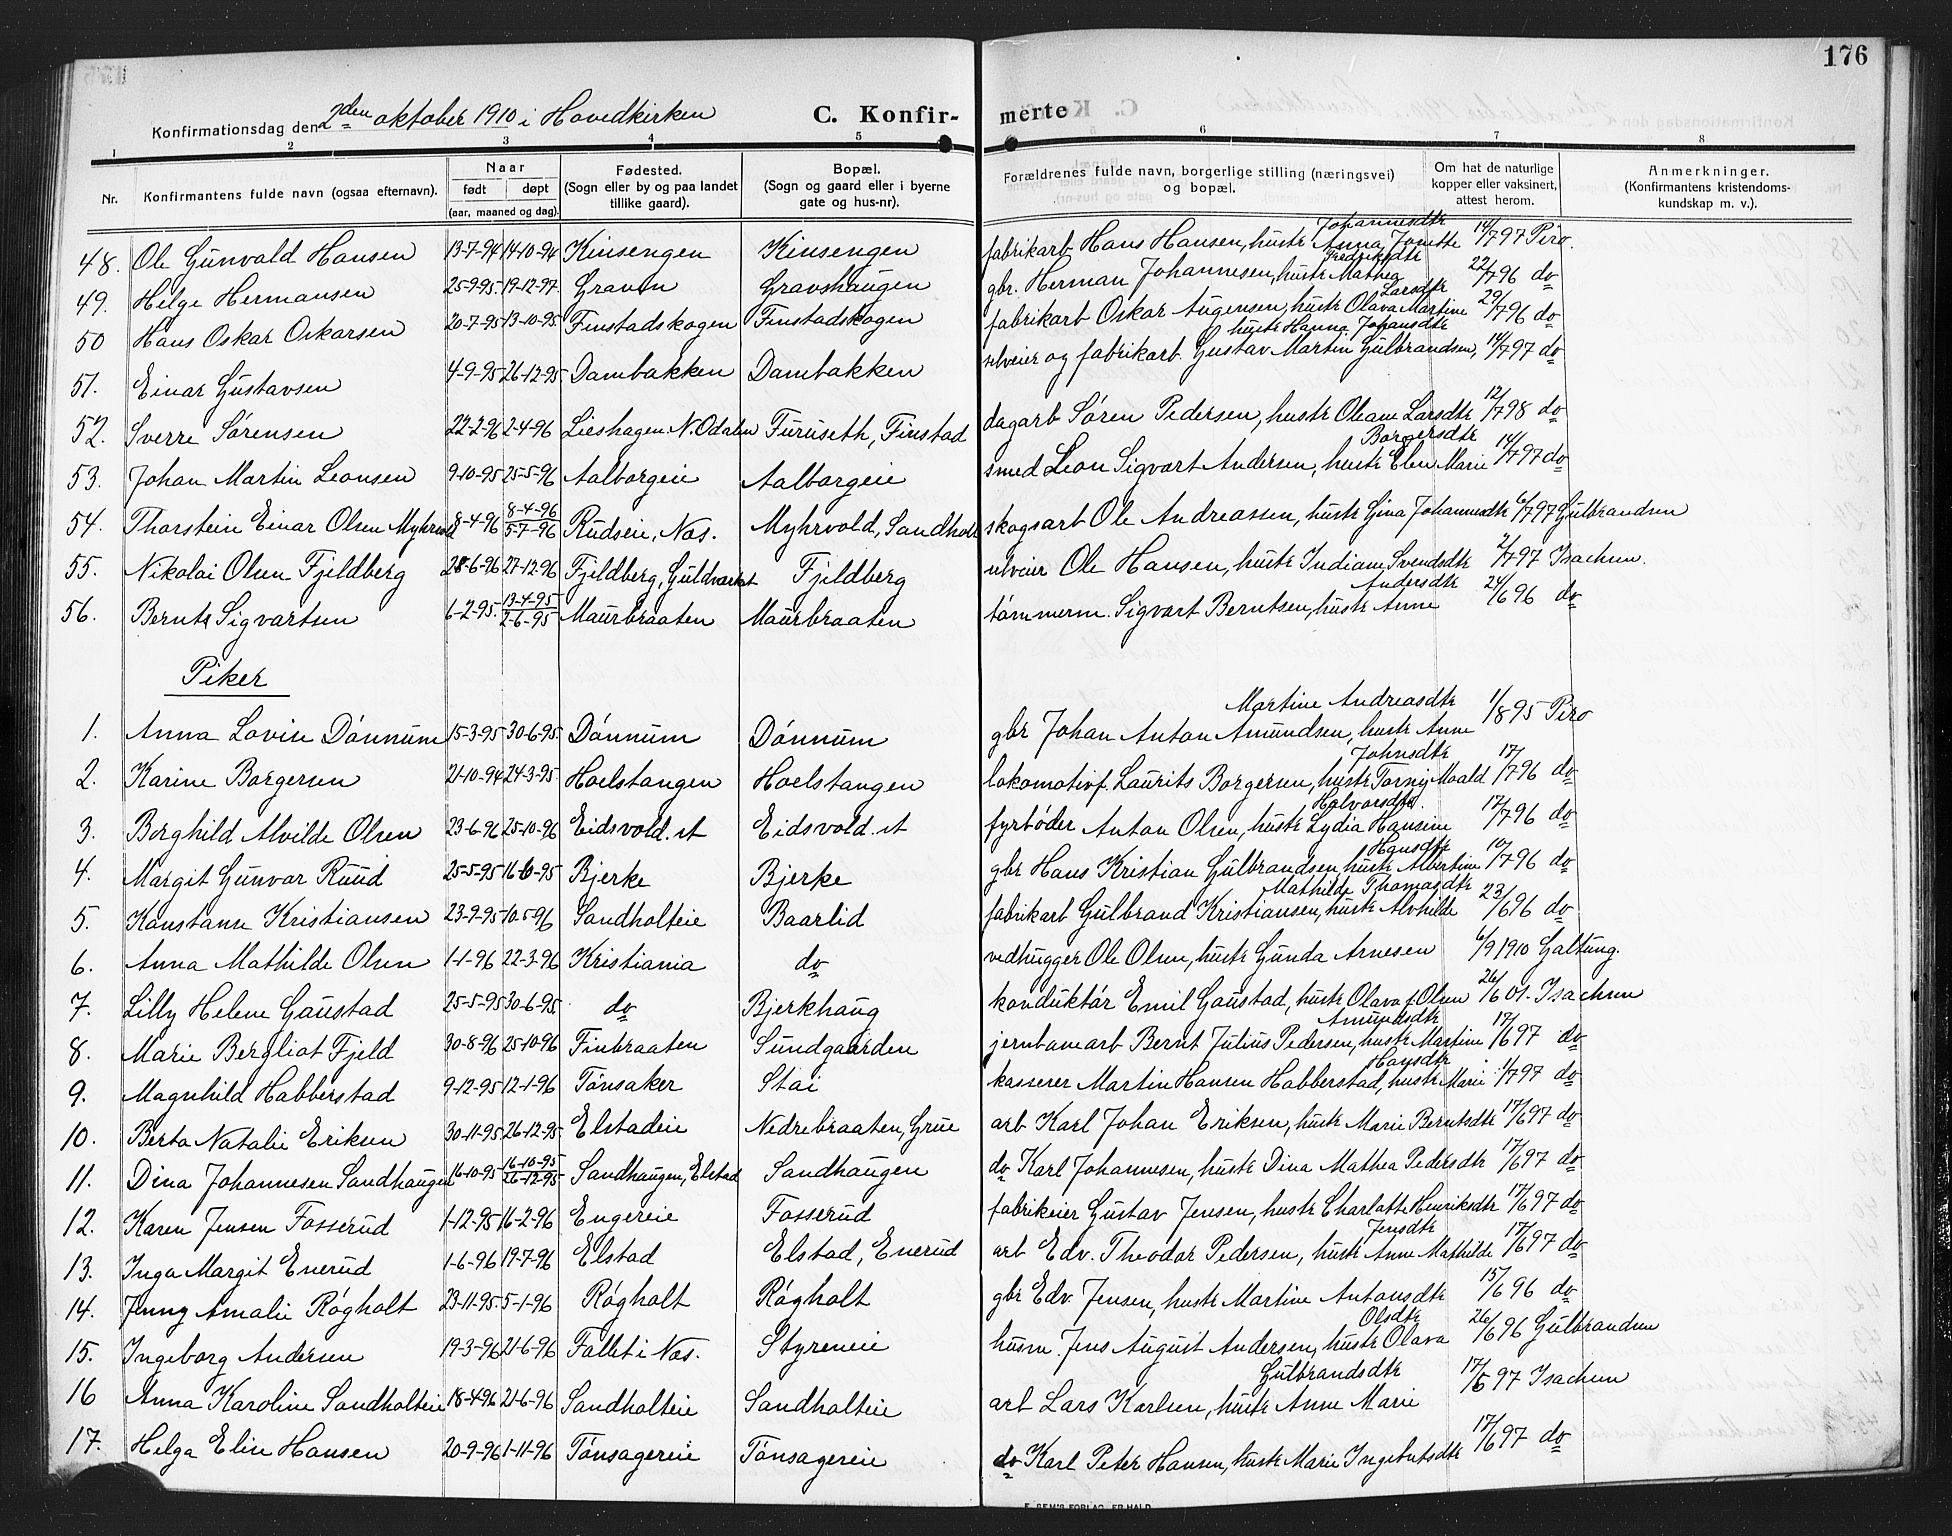 176
Konfirmationsdag den 2den oktober 1910 i Hovedkirken C. Konfirmerte
1 2 3 4 5 6 7 8
Nr. Konfirmantens fulde navn (ogsaa efternavn). Naar født døpt (aar, maaned og dag). Fødested. (Sogn eller by og paa landet tillike gaard). Bopæl. (Sogn og gaard eller i byerne gate og hus-nr). Forældrenes fulde navn, borgerlige stilling (næringsvei) og bopæl. Om hat de naturlige kopper eller vaksinert, attest herom. Anmerkninger. (Konfirmantens kristendomskundskap m. v.).
48. Ole Gunvald Hansen 13-7-94 14-10-94 Kinsengen Kinsengen fabrikarb Hans Hansen, hustr Anna Jonette Johannesdtr 14/7 97 Piro.
49. Helge Hermansen 25-9-95 19-12-97. Gravin Gravshaugen gbr. Herman Johannesen, hustr Mathea Fredriksdtr 22/7 96 do
50 Hans Oskar Oskarsen 20-7-95 13-10-95. Finstadskogen Finstadskogen fabrikarb Oskar Augensen, hustr Olava Martine Larsdtr 29/7 96 do
51. Einar Gustavsen 4-9-95 26-12-95 Dambakken Dambakken selveier og fabrikarb. Gustav Martin Gulbrandsen, hustr Hanna Johansdtr 14/7 97 do
52. Sverre Sørensen 22-2-96 2-4-96 Lieshagen N. Odalen Furuseth, Finstad dagarb Søren Pedersen, hustr Oleane Larsdtr 12/7 98 do
53. Johan Martin Leonsen 9-10-95 25-5-96 Aalborgeie Aalborgeie smed Leon Sigvart Andersen, hustr Elen Marie Borgersdtr 14/7 97 do
54. Thorstein Einar Olsen Myhrvold 8-4-96 8-4-96 5-7-96 Rudseie, Nas. Myhrvold, Sandholt skogsarb Ole Andreassen, hustr Gina Johannesdtr 6/7 97 Gulbrandsen
55. Nikolai Olsen Fjeldberg 28-6-96 27-12-96 Fjeldberg, Guldverket Fjeldberg selveier Ole Hansen, hustr Indiane Svendsdtr 2/7 97 Isachsen.
56. Bernt Sigvartsen 6-2-95. 13-4-95 2-6-95 Maurbraaten Maurbraaten tømmerm. Sigvart Berntsen, hustr Anne Andersdtr 24/6 96 do
Piker
1. Anna Lovise Dønnum 15-3-95 30-6-95. Dønnum Dønnum gbr Johan Anton Amundsen, hustr Anne Martine Andreasdtr 1/8 95 Piro
2. Karine Borgersen 21-10-94 24-3-95 Hoelstangen Hoelstangen lokomotivf. Laurits Borgersen, hustr Torny Moald Johnsdtr 17/7 96 do
3. Borghild Alvilde Olsen 23-6-96 25-10-96 Eidsvold. st Eidsvold. st fyrbøder Anton Olsen, hustr Lydia Hansine Halvorsdtr. 17/7 96 do
4. Margit Gunvor Ruud 25-5-95 16-6-95 Bjerke Bjerke gbr Hans Kristian Gulbrandsen, hustr Albertine Hansdtr 10/7 96 do
5. Konstanse Kristiansen 23-9-95 10-5-96 Sandholteie Baarlid fabrikarb Gulbrand Kristiansen, hustr Alvhilde Mathilde Thomasdtr 23/6 96 do
6. Anna Mathilde Olsen 1-1-96 22-3-96 Kristiania do vedhugger Ole Olsen, hustr Gunda Arnesen 6/9 1910 Galtung.
7. Lilly Helene Gaustad 25-5-95 30-6-95. do Bjerkhaug konduktør Emil Gaustad, hustr Olava f. Olsen 26/6 01. Isachsen
8. Marie Bergliot Fjeld 30-8-96 25-10-96 Finbraaten Sundgaarden jernbanearb Bernt Julius Pedersen, hustr Martine Amundsdtr 17/6 97 do
9. Magnhild Habberstad 9-12-95 12-1-96 Tønsaker Stai kasserer Martin Hansen Habberstad, hustr Marie Hansdtr 1/7 97 do
10. Berta Natalie Eriksen 30-11-95 26-12-95. Elstadeie Nedrebraaten, Grue arb Karl Johan Eriksen, hustr Marie Berntsdtr 17/6 97 do
11. Dina Johannesen Sandhaugen 16-10-95 16-10-95 26-12-95 Sandhaugen, Elstad Sandhaugen do Karl Johannesen, hustr Dina Mathea Pedersdtr 17/6 97 do
12. Karen Jensen Fosserud 1-12-95 16-2-96 Engereie Fosserud fabrikeier Gustav Jensen, hustr Charlotte Henriksdtr 17/6 97 do
13. Inga Margit Enerud 1-6-96 19-7-96 Elstad Elstad, Enerud arb Edv. Theodor Pedersen, hustr Anne Mathilde Jensdtr 17/6 97 do
14. Jenny Amalie Røgholt 23-11-95. 5-1-96 Røgholt Røgholt gbr Edv. Jensen, hustr Martine Antonsdtr 15/6 96 do
15. Ingeborg Andersen 19-3-96 21-6-96 Fallet i Nas. Styreneie husm. Jens August Andersen, hustr Olava Olsdtr 26/6 96 Gulbrandsen
16 Anna Karoline Sandholteie 18-4-96 21-6-96 Sandholteie Sandholteie arb Lars Karlsen, hustr Anne Marie Gulbrandsdtr 17/6 97 Isachsen
17. Helga Elise Hansen 20-9-96 1-11-96 Tønsagereie Tønsagereie do Karl Peter Hansen, hustr Marie Ingebretsdtr 17/6 97 do